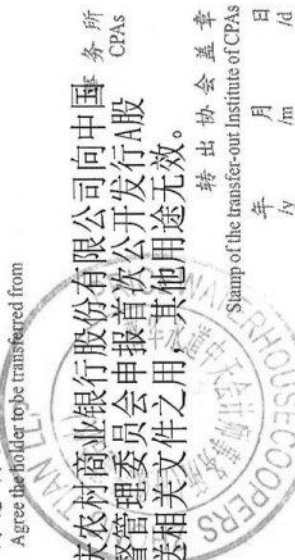 Agree the holder to be transferred from
事务所
CPAs
农村商业银行股份有限公司向中国
督管理委员会申报首次公开发行A股
送相关文件之用，其他用途无效。
转出协会盖章
Stamp of the transfer-out Institute of CPAs
年 月 日
/y /m /d
天会计师事务所
WATERHOUSECOOPERS